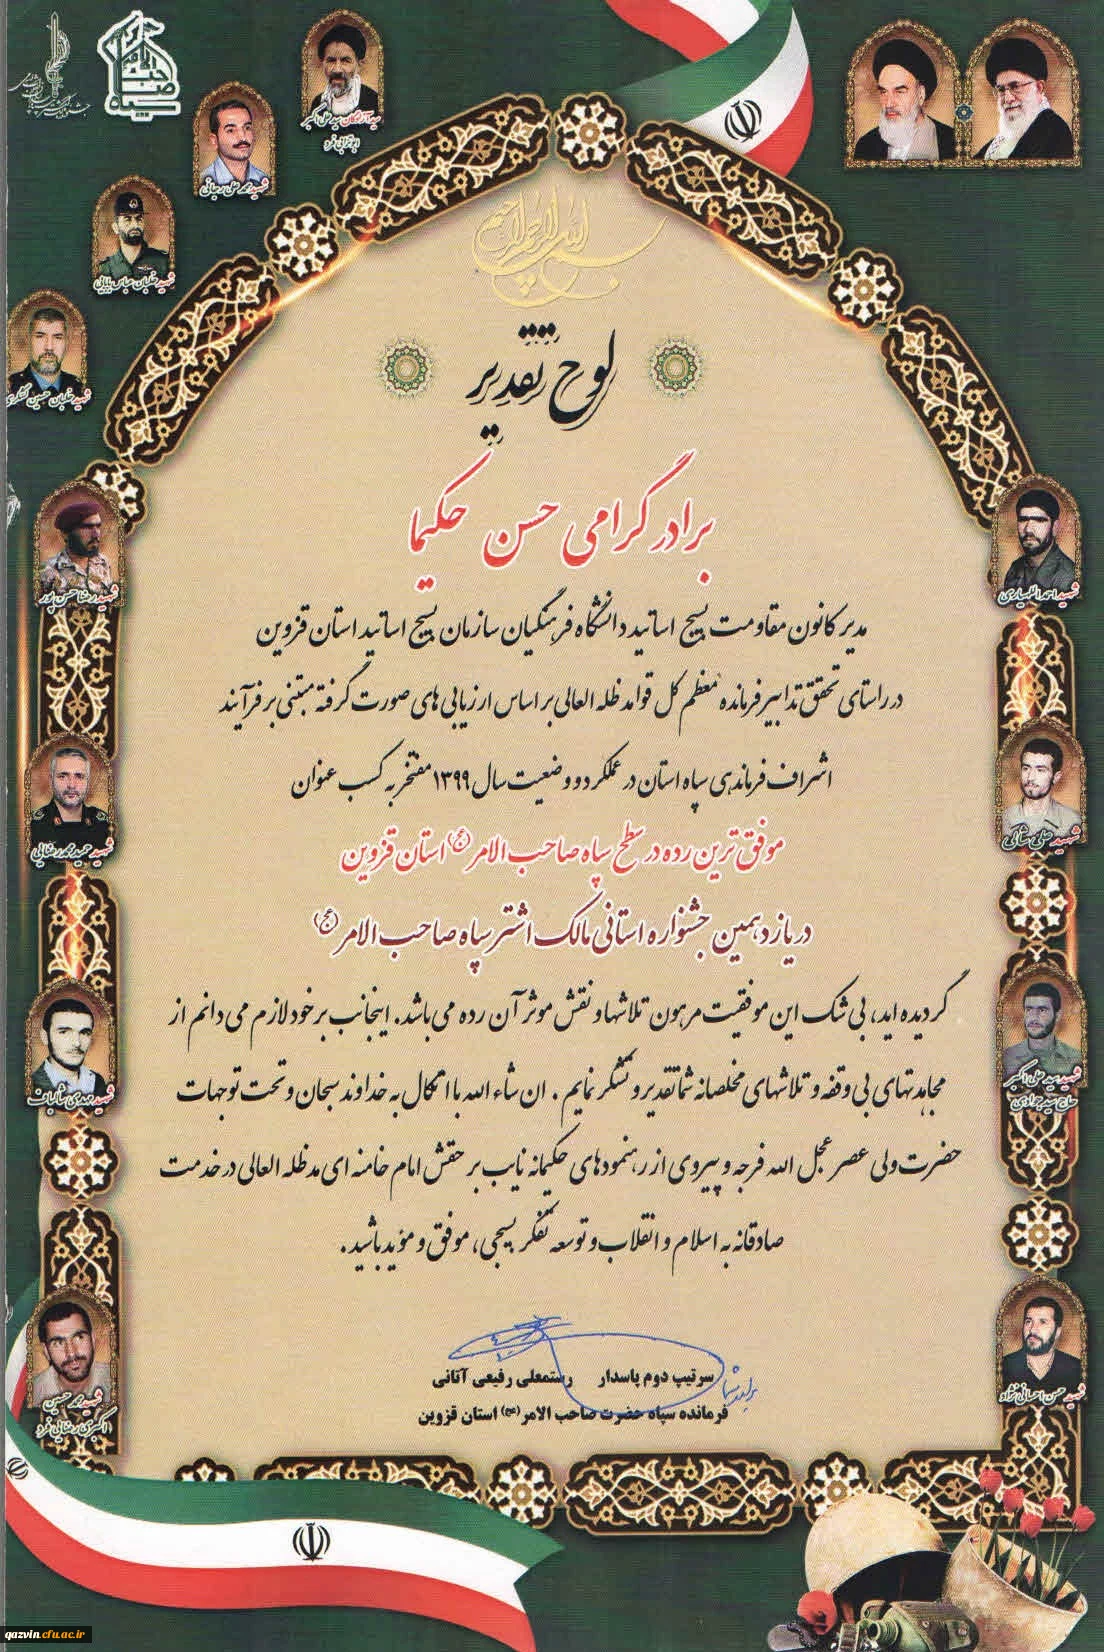 بسم الله الرحمن الرحیم
لوح تقدیر
برادر گرامی حسن حکیما
مدیر کانون مقاومت بسیج اساتید دانشگاه فرهنگیان سازمان بسیج اساتید استان قزوین
در راستای تحقق تدابیر فرمانده معظم کل قوا مدظله العالی بر اساس ارزیابی های صورت گرفته مبتنی بر فرآیند
اشراف فرماندهی سپاه استان در عملکرد و وضعیت سال ۱۳۹۹ مفتخر به کسب عنوان
موفق ترین رده در سطح سپاه صاحب الامر (عج) استان قزوین
در یازدهمین جشنواره استانی مالک اشتر سپاه صاحب الامر (عج)
گردیده اید، بی شک این موفقیت مرهون تلاشها و نقش موثر آن رده می باشد. اینجانب بر خود لازم می دانم از
مجاهدتهای بی وقفه و تلاشهای مخلصانه شما تقدیر و تشکر نمایم . ان شاء الله با اتکال به خداوند سبحان و تحت توجهات
حضرت ولی عصر عجل الله فرجه و پیروی از رهنمودهای حکیمانه نایب بر حقش امام خامنه ای مدظله العالی در خدمت
صادقانه به اسلام و انقلاب و توسعه تفکر بسیجی، موفق و موید باشید.
سرتیپ دوم پاسدار رستمعلی رفیعی آتانی
فرمانده سپاه حضرت صاحب الامر (عج) استان قزوین
سید آزادگان سید علی اکبر
ابوترابی فرد
شهید محمد علی رجائی
شهید خلبان عباس بابایی
شهید خلبان حسین لشگری
شهید رضا حسن پور
شهید حمید محمدرضایی
شهید مهدی شالباف
شهید محمد حسین
اکبری رضایی فرد
شهید احمد اللهیاری
شهید علی شاکی
شهید سید علی اکبر
حاج سید جوادی
شهید حسن احسانی نژاد
qazvin.cfu.ac.ir